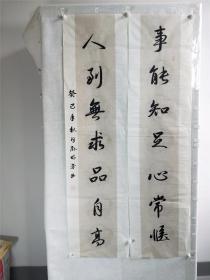 事能知足心常惬
人到無求品自高
癸巳年秋月